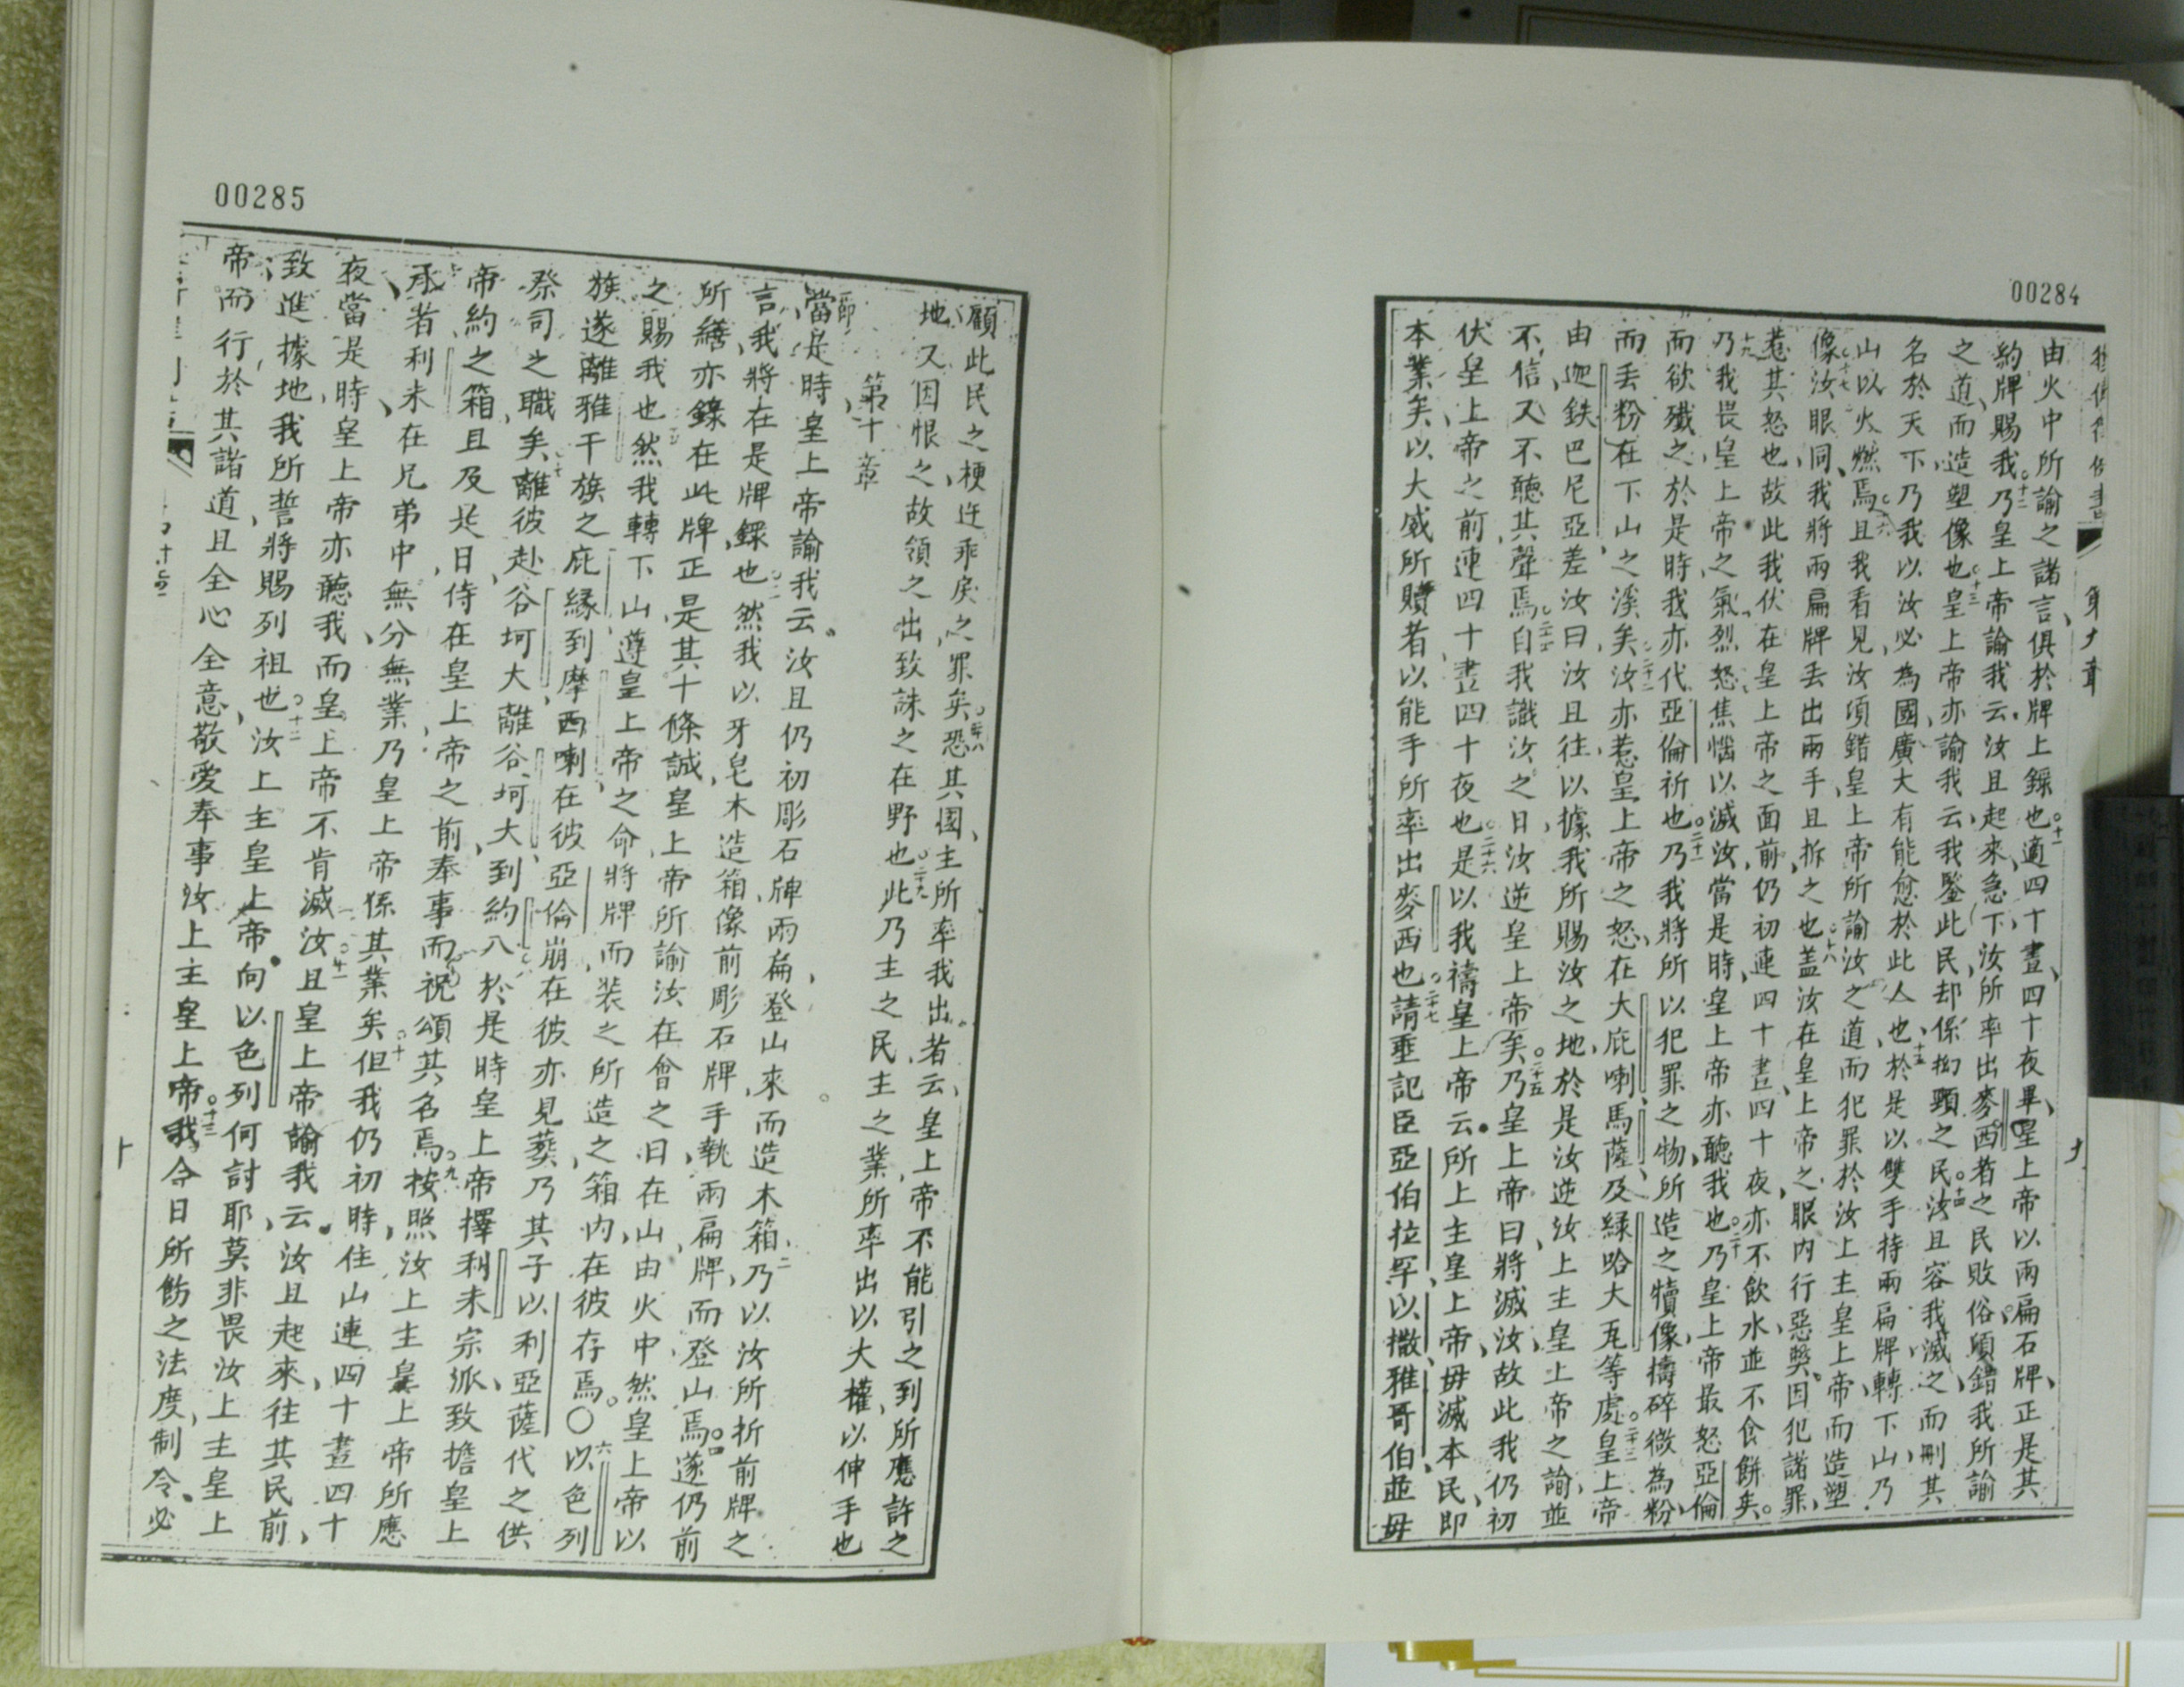 00284
第九章
由火中所諭之諸言俱於牌上錄也十一適四十晝四十夜畢皇上帝以兩扁石牌正是其
約牌賜我十二乃皇上帝諭我云汝且起來急下汝所率出麥西者之民敗俗頃錯我所諭
之道而造塑像也十三皇上帝亦諭我云我鑒此民却係拗頸之民十四汝且容我滅之而刪其
名於天下乃我以汝必為國廣大有能愈於此人也十五於是以雙手持兩扁牌轉下山乃
山以火燃焉十六且我看見汝頃錯皇上帝所諭汝之道而犯罪於汝上主皇上帝而造塑
像十七汝眼同我將兩扁牌丟出兩手且拆之也十八蓋汝在皇上帝之眼內行惡獘因犯諸罪
惹其怒也故此我伏在皇上帝之面前仍初連四十晝四十夜亦不飲水並不食餅矣
十九乃我畏皇上帝之氣烈怒焦惱以滅汝當是時皇上帝亦聽我也二十乃皇上帝最怒亞倫
而欲殲之於是時我亦代亞倫祈也二十一乃我將所以犯罪之物所造之犢像擣碎微為粉
而丟粉在下山之溪矣二十二汝亦惹皇上帝之怒在大庇喇馬薩及緑哈大瓦等處二十三皇上帝
由迦鉄巴尼亞差汝曰汝且往以據我所賜汝之地於是汝逆汝上主皇上帝之諭並
不信又不聽其聲焉二十四自我識汝之日汝逆皇上帝矣二十五乃皇上帝曰將滅汝故此我仍初
伏皇上帝之前連四十晝四十夜也二十六是以我禱皇上帝云所上主皇上帝毋滅本民即
本業矣以大威所贖者以能手所率出麥西也二十七請垂記臣亞伯拉罕以撒雅哥伯並毋
00285
顧此民之梗迕乖戾之罪矣二十八恐其國主所率我出者云皇上帝不能引之到所應許之
地又因恨之故領之出致誅之在野也二十九此乃主之民主之業所率出以大權以伸手也
第十章
一節當是時皇上帝諭我云汝且仍初彫石牌兩扁登山來而造木箱二乃以汝所折前牌之
言我將在是牌錄也三然我以牙皂木造箱像前彫石牌手執兩扁牌而登山焉四遂仍前
所繕亦錄在此牌正是其十條誡皇上帝所諭汝在會之日在山由火中然皇上帝以
之賜我也五然我轉下山遵皇上帝之命將牌而裝之所造之箱內在彼存焉〇六以色列
族遂離雅干族之庇緣到摩西喇在彼亞倫崩在彼亦見葬乃其子以利亞薩代之供
祭司之職矣七離彼赴谷坷大離谷坷大到約八於是時皇上帝擇利未宗派致擔皇上
帝約之箱且及是日侍在皇上帝之前奉事而祝頌其名焉九按照汝上主皇上帝所應
承者利未在兄弟中無分無業乃皇上帝係其業矣十但我仍初時住山連四十晝四十
夜當是時皇上帝亦聽我而皇上帝不肯滅汝十一且皇上帝諭我云汝且起來往其民前
致進據地我所誓將賜列祖也十二汝上主皇上帝向以色列何討耶莫非畏汝上主皇上
帝而行於其諸道且全心全意敬愛奉事汝上主皇上帝十三我今日所飭之法度制令必